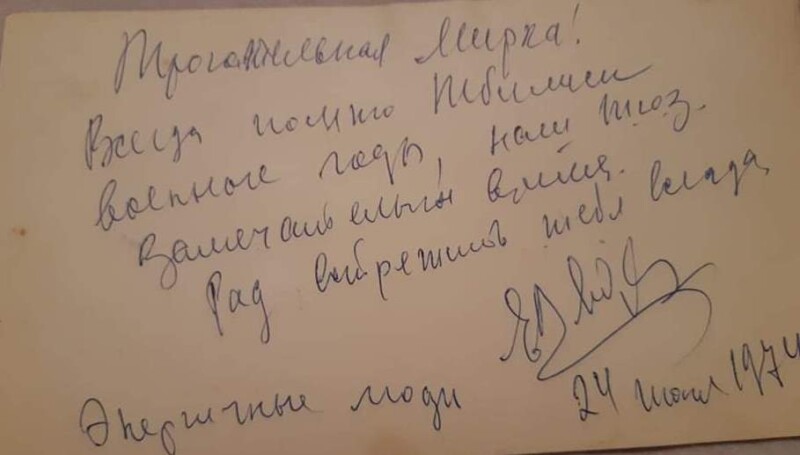 Трогательная Мирка!
Всегда помню Тбилиси
военные годы, наш тюз.
Замечательный
Рад тебя всегда
Энергичные люди
24 июля 1974